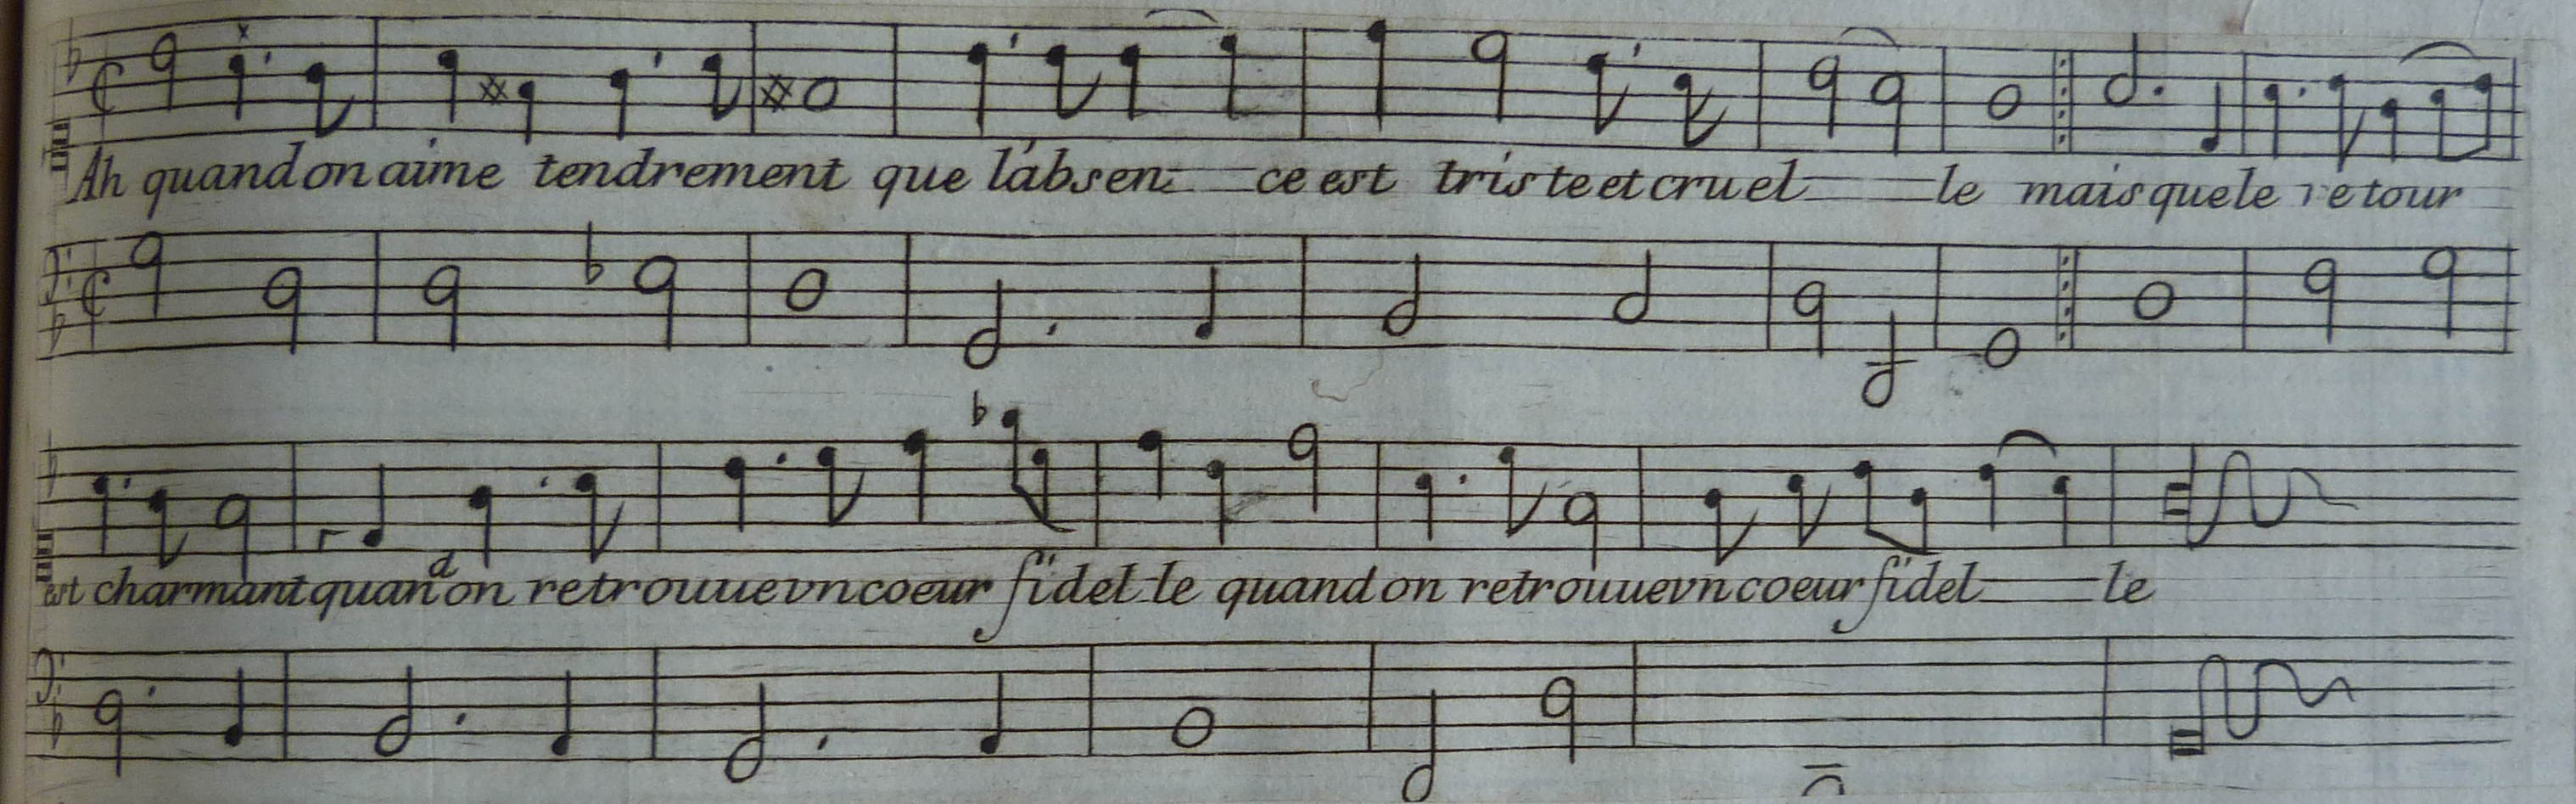 Ah quand on aime tendrement que l'absen ce est triste et cruel le mais que le retour
est charmant quand on retrouue vn coeur fidel le quand on retrouue vn coeur fidel le